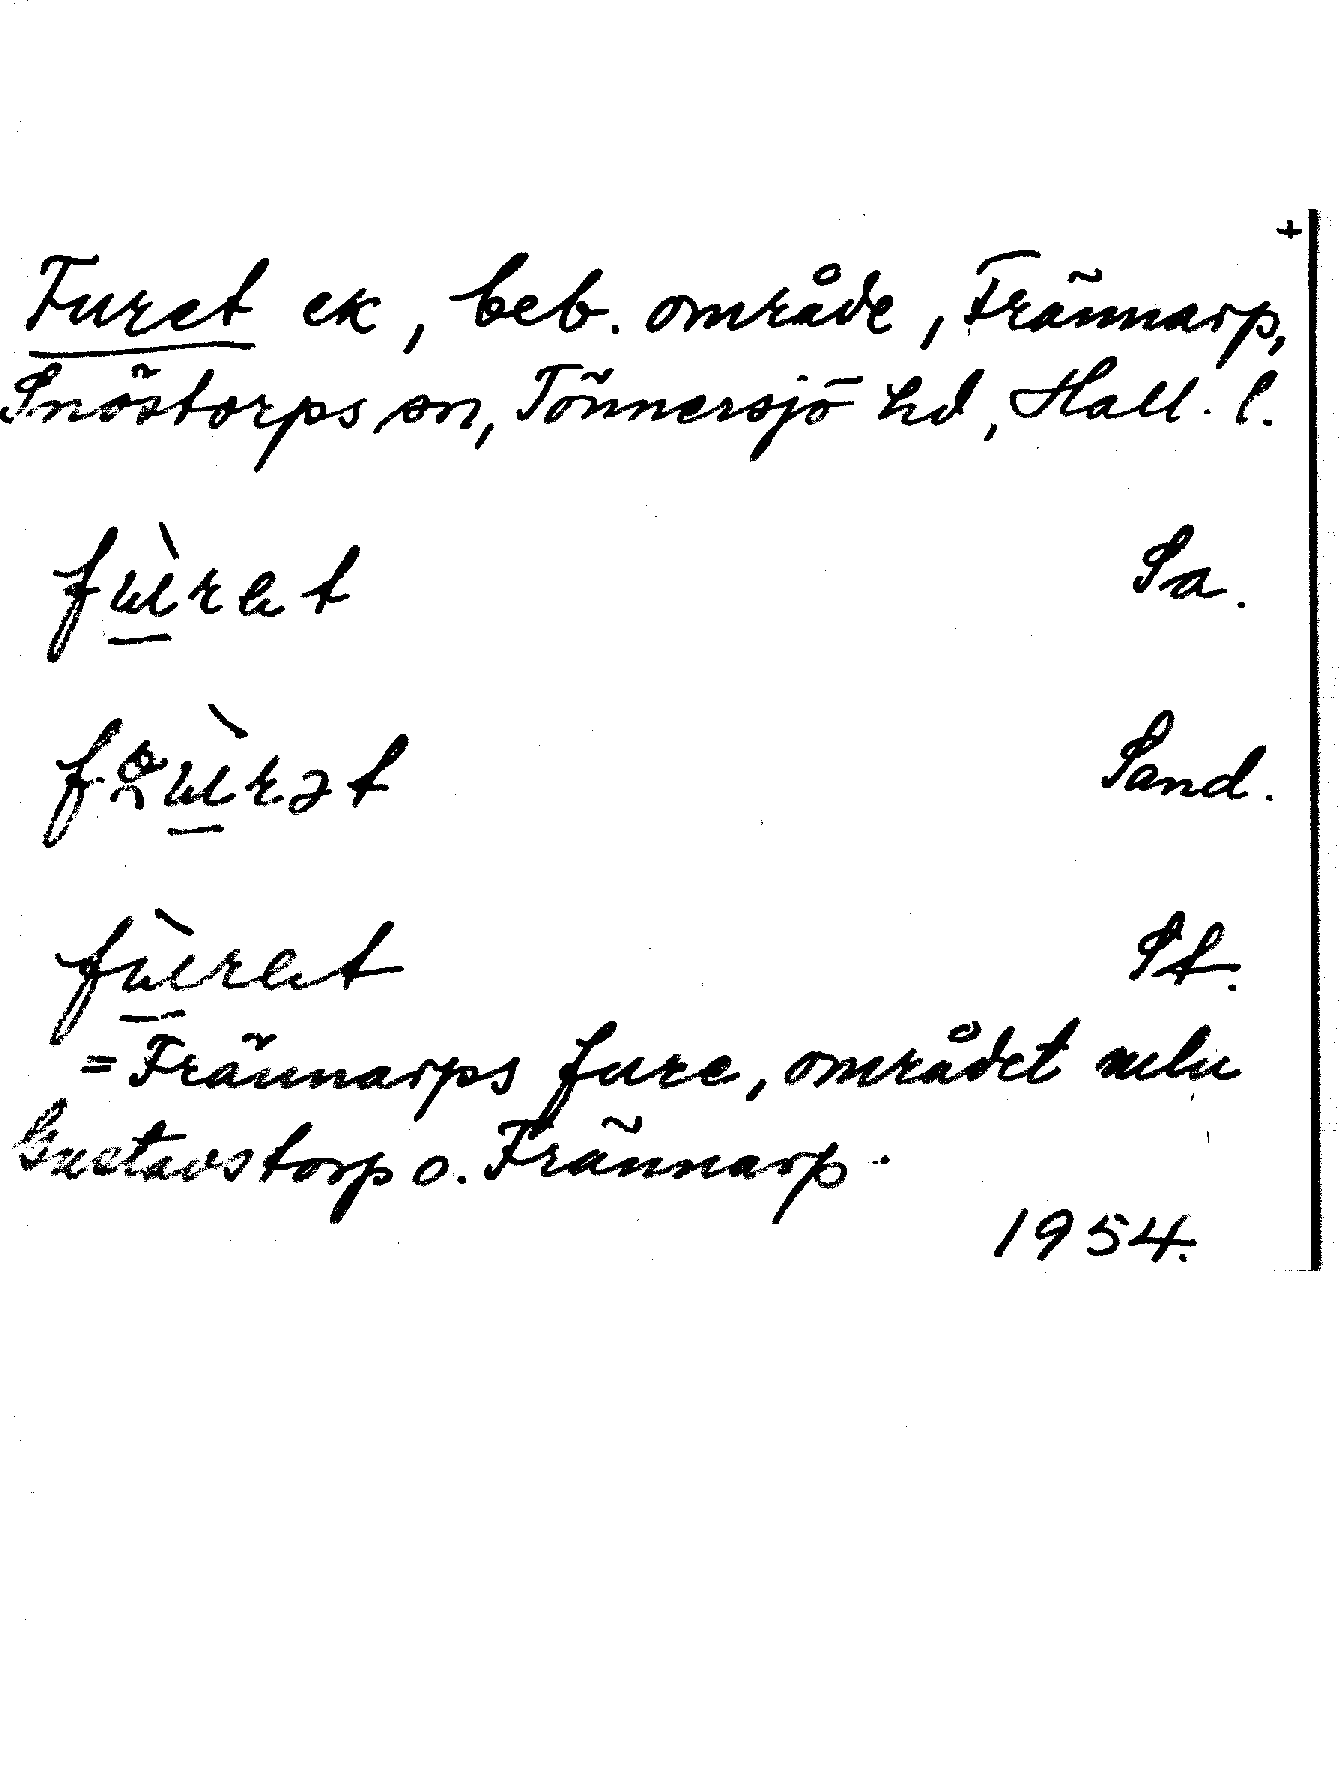 +
Furet ek, beb. område, Frännarp,
Snöstorps sn, Tönnersjö hd, Hall. l.
Sa.
Sand.
St.
= Frännarps fure, området mln
Gustavstorp o. Frännarp.
1954.